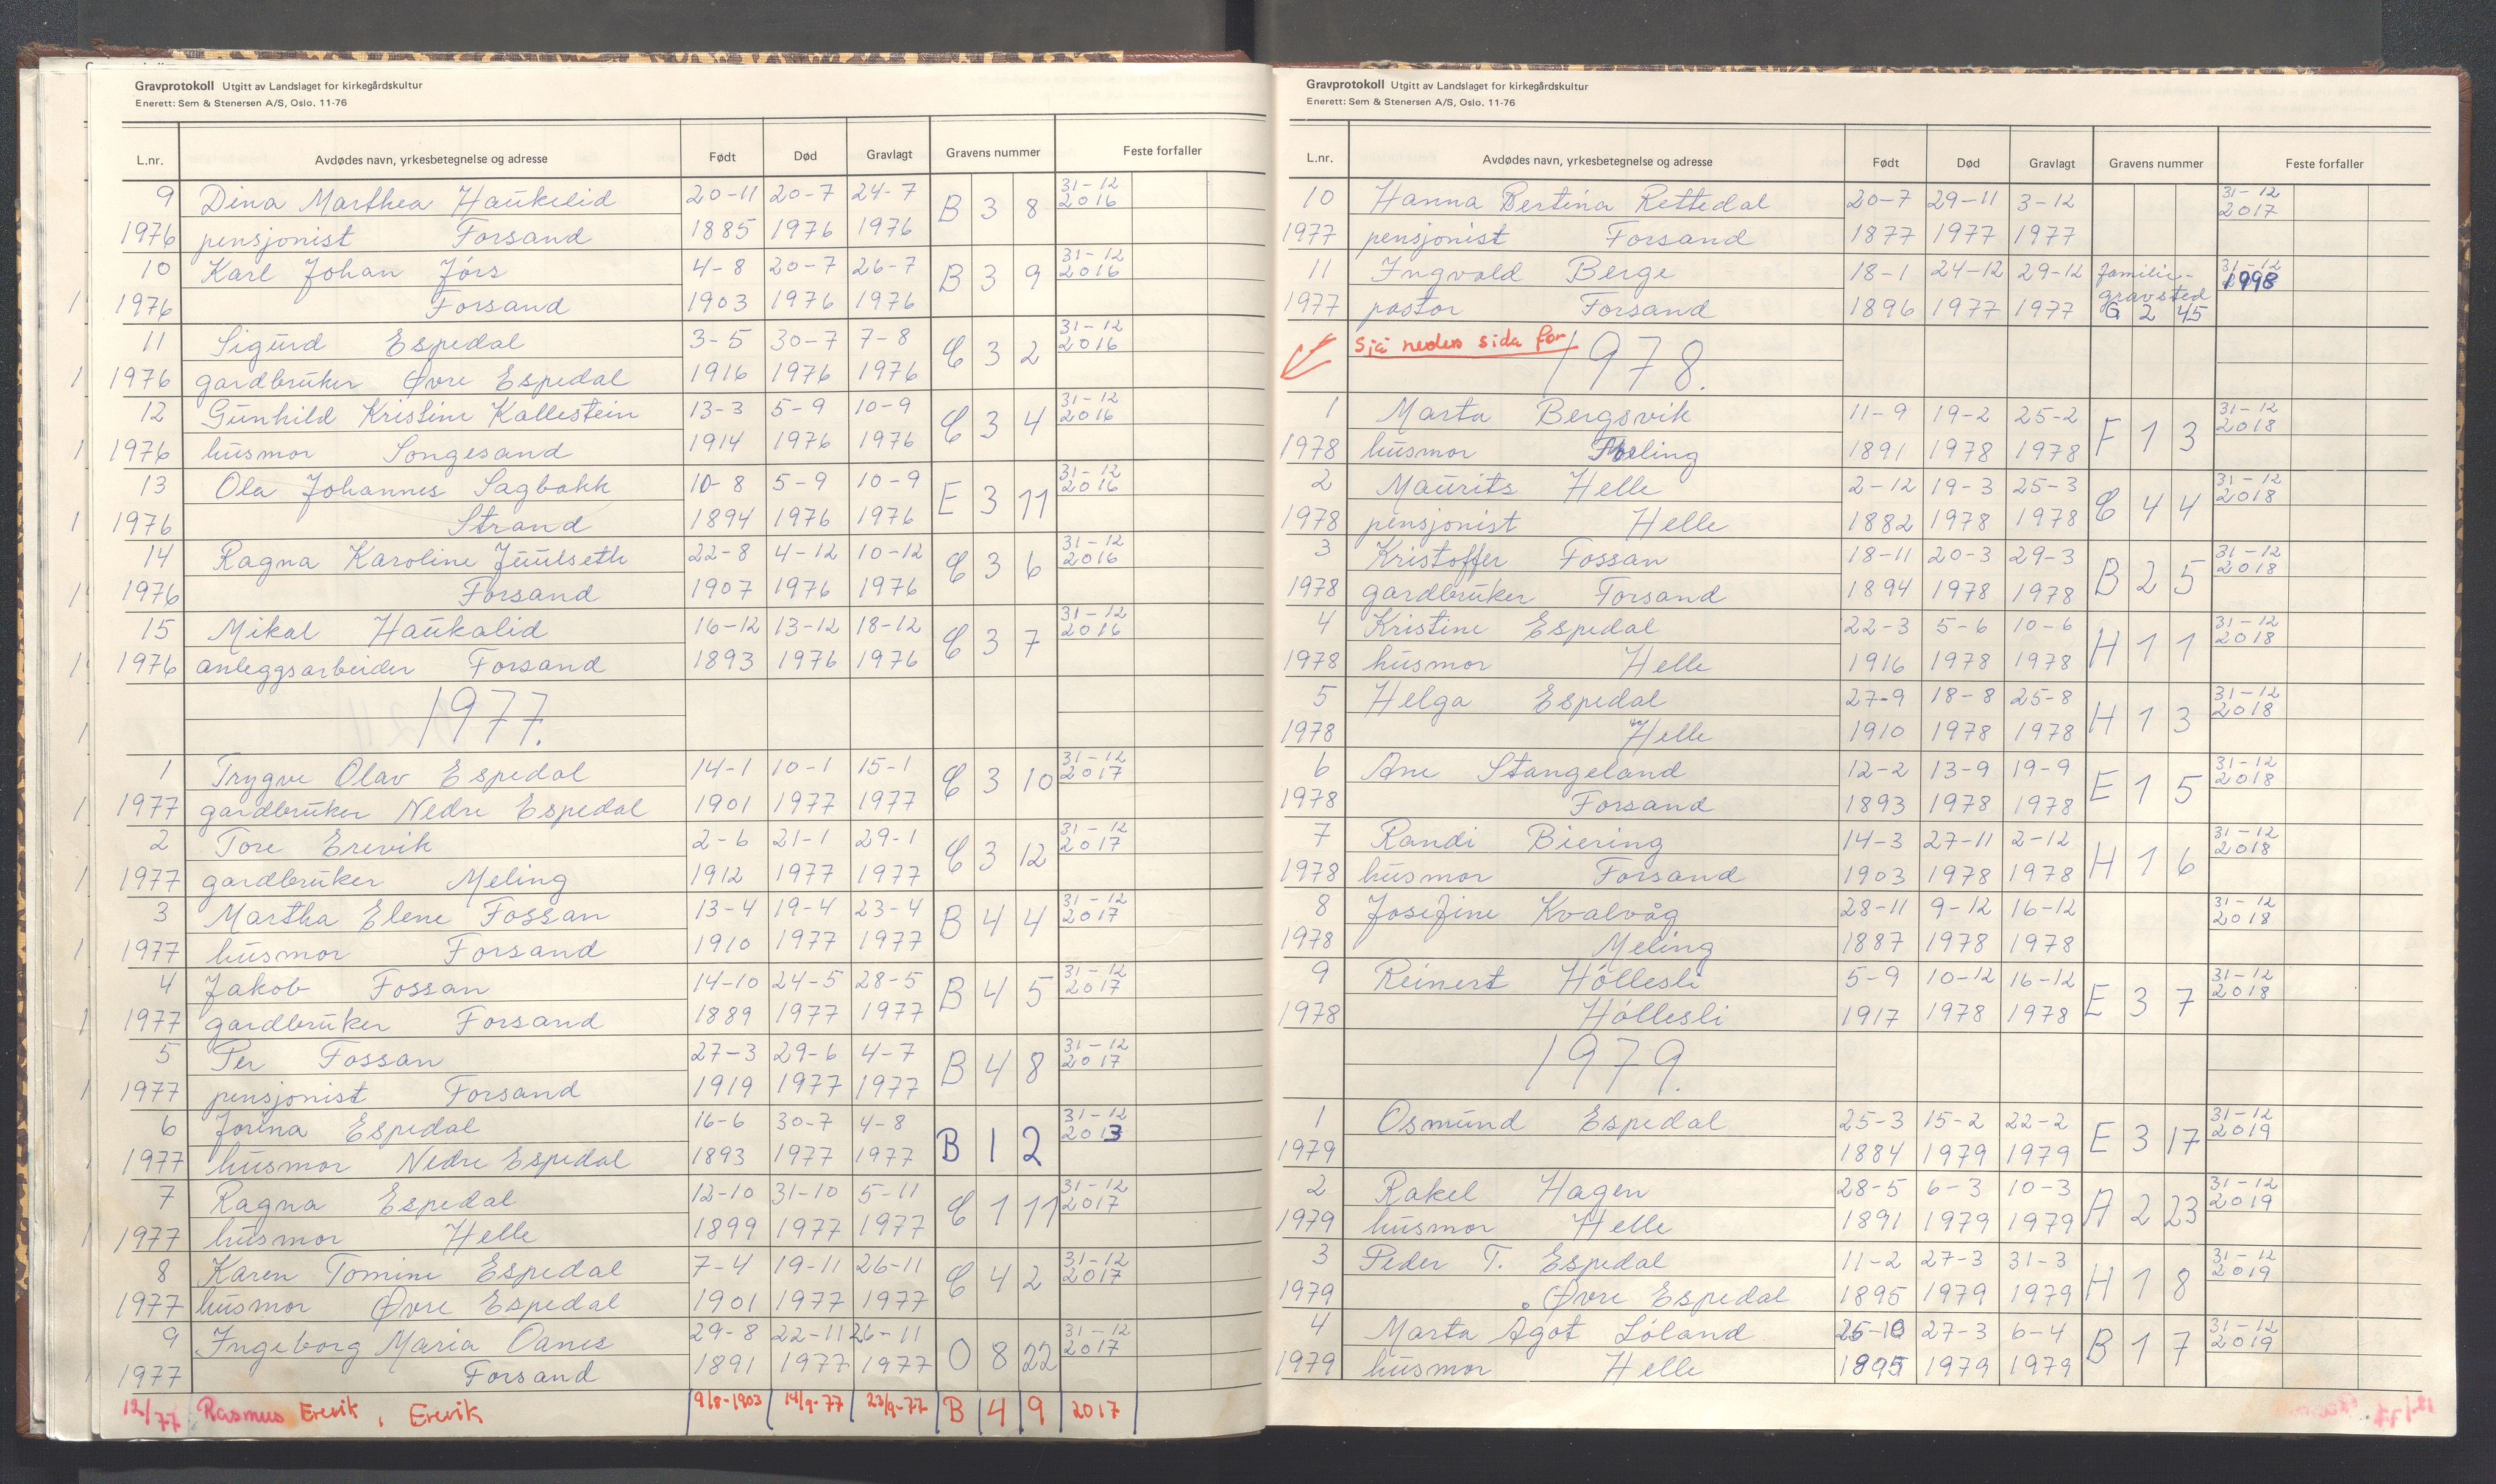 Gravprotokoll Utgitt av Landslaget for kirkegårdskultur
Enerett: Sem & Stenersen A/S, Oslo. 11-76
L.nr. Avdødes navn, yrkesbetegnelse og adresse Født Død Gravlagt Gravens nummer Feste forfaller
9 Dina Marthea Haukelid 20-11 20-7 24-7 B 3 8 31-12 2016
1976 pensjonist Forsand 1885 1976 1976
10 Karl Johan Jørs 4-8 20-7 26-7 B 3 9 31-12 2016
1976 Forsand 1903 1976 1976
11 Sigurd Espedal 3-5 30-7 7-8 C 3 2 31-12 2016
1976 gardbruker Øvre Espedal 1916 1976 1976
12 Gunhild Kristine Kallestein 13-3 5-9 10-9 C 3 4 31-12 2016
1976 husmor Songesand 1914 1976 1976
13 Ola Johannes Sagbakk 10-8 5-9 10-9 E 3 11 31-12 2016
1976 Strand 1894 1976 1976
14 Ragna Karoline Juulseth 22-8 4-12 10-12 C 3 6 31-12 2016
1976 Forsand 1907 1976 1976
15 Mikal Haukalid 16-12 13-12 18-12 C 3 7 31-12 2016
1976 anleggsarbeider Forsand 1893 1976 1976
1977.
1 Trygve Olav Espedal 14-1 10-1 15-1 C 3 10 31-12 2017
1977 gardbruker Nedre Espedal 1901 1977 1977
2 Tore Erevik 2-6 21-1 29-1 C 3 12 31-12 2017
1977 gardbruker Meling 1912 1977 1977
3 Martha Elene Fossan 13-4 19-4 23-4 B 4 4 31-12 2017
1977 husmor Forsand 1910 1977 1977
4 Jakob Fossan 14-10 24-5 28-5 B 4 5 31-12 2017
1977 gardbruker Forsand 1889 1977 1977
5 Per Fossan 27-3 29-6 4-7 B 4 8 31-12 2017
1977 pensjonist Forsand 1919 1977 1977
6 Jorina Espedal 16-6 30-7 4-8 B 1 2 31-12 2013
1977 husmor Nedre Espedal 1893 1977 1977
7 Ragna Espedal 12-10 31-10 5-11 C 1 11 31-12 2017
1977 husmor Helle 1899 1977 1977
8 Karen Tomine Espedal 7-4 19-11 26-11 C 4 2 31-12 2017
1977 husmor Øvre Espedal 1901 1977 1977
9 Ingeborg Maria Oanes 29-8 22-11 26-11 O 8 22 31-12 2017
1977 Forsand 1891 1977 1977
12/77 Rasmus Erevik, Erevik 9/8-1903 14/9-77 23/9-77 B 4 9 2017
Gravprotokoll Utgitt av Landslaget for kirkegårdskultur
Enerett: Sem & Stenersen A/S, Oslo. 11-76
L.nr. Avdødes navn, yrkesbetegnelse og adresse Født Død Gravlagt Gravens nummer Feste forfaller
10 Hanna Bertina Rettedal 20-7 29-11 3-12 31-12 2017
1977 pensjonist Forsand 1877 1977 1977
11 Ingvald Berge 18-1 24-12 29-12 familie- gravsted 31-12 1998
1977 pastor Forsand 1896 1977 1977 G 2 45
Sjå neders sida for
1978.
1 Marta Bergsvik 11-9 19-2 25-2 F 1 3 31-12 2018
1978 husmor Meling 1891 1978 1978
2 Maurits Helle 2-12 19-3 25-3 C 4 4 31-12 2018
1978 pensjonist Helle 1882 1978 1978
3 Kristoffer Fossan 18-11 20-3 29-3 B 2 5 31-12 2018
1978 gardbruker Forsand 1894 1978 1978
4 Kristine Espedal 22-3 5-6 10-6 H 1 1 31-12 2018
1978 husmor Helle 1916 1978 1978
5 Helga Espedal 27-9 18-8 25-8 H 1 3 31-12 2018
1978 Helle 1910 1978 1978
6 Ane Stangeland 12-2 13-9 19-9 E 1 5 31-12 2018
1978 Forsand 1893 1978 1978
7 Randi Biering 14-3 27-11 2-12 H 1 6 31-12 2018
1978 husmor Forsand 1903 1978 1978
8 Josefine Kvalvåg 28-11 9-12 16-12 31-12 2018
1978 Meling 1887 1978 1978
9 Reinert Höllesli 5-9 10-12 16-12 E 3 7 31-12 2018
1978 Höllesli 1917 1978 1978
1979.
1 Osmund Espedal 25-3 15-2 22-2 E 3 17 31-12 2019
1979 1884 1979 1979
2 Rakel Hagen 28-5 6-3 10-3 A 2 23 31-12 2019
1979 husmor Helle 1891 1979 1979
3 Peder T. Espedal 11-2 27-3 31-3 H 1 8 31-12 2019
1979 Øvre Espedal 1895 1979 1979
4 Marta Agot Löland 26-10 27-3 6-4 B 1 7 31-12 2019
1979 husmor Helle 1895 1979 1979